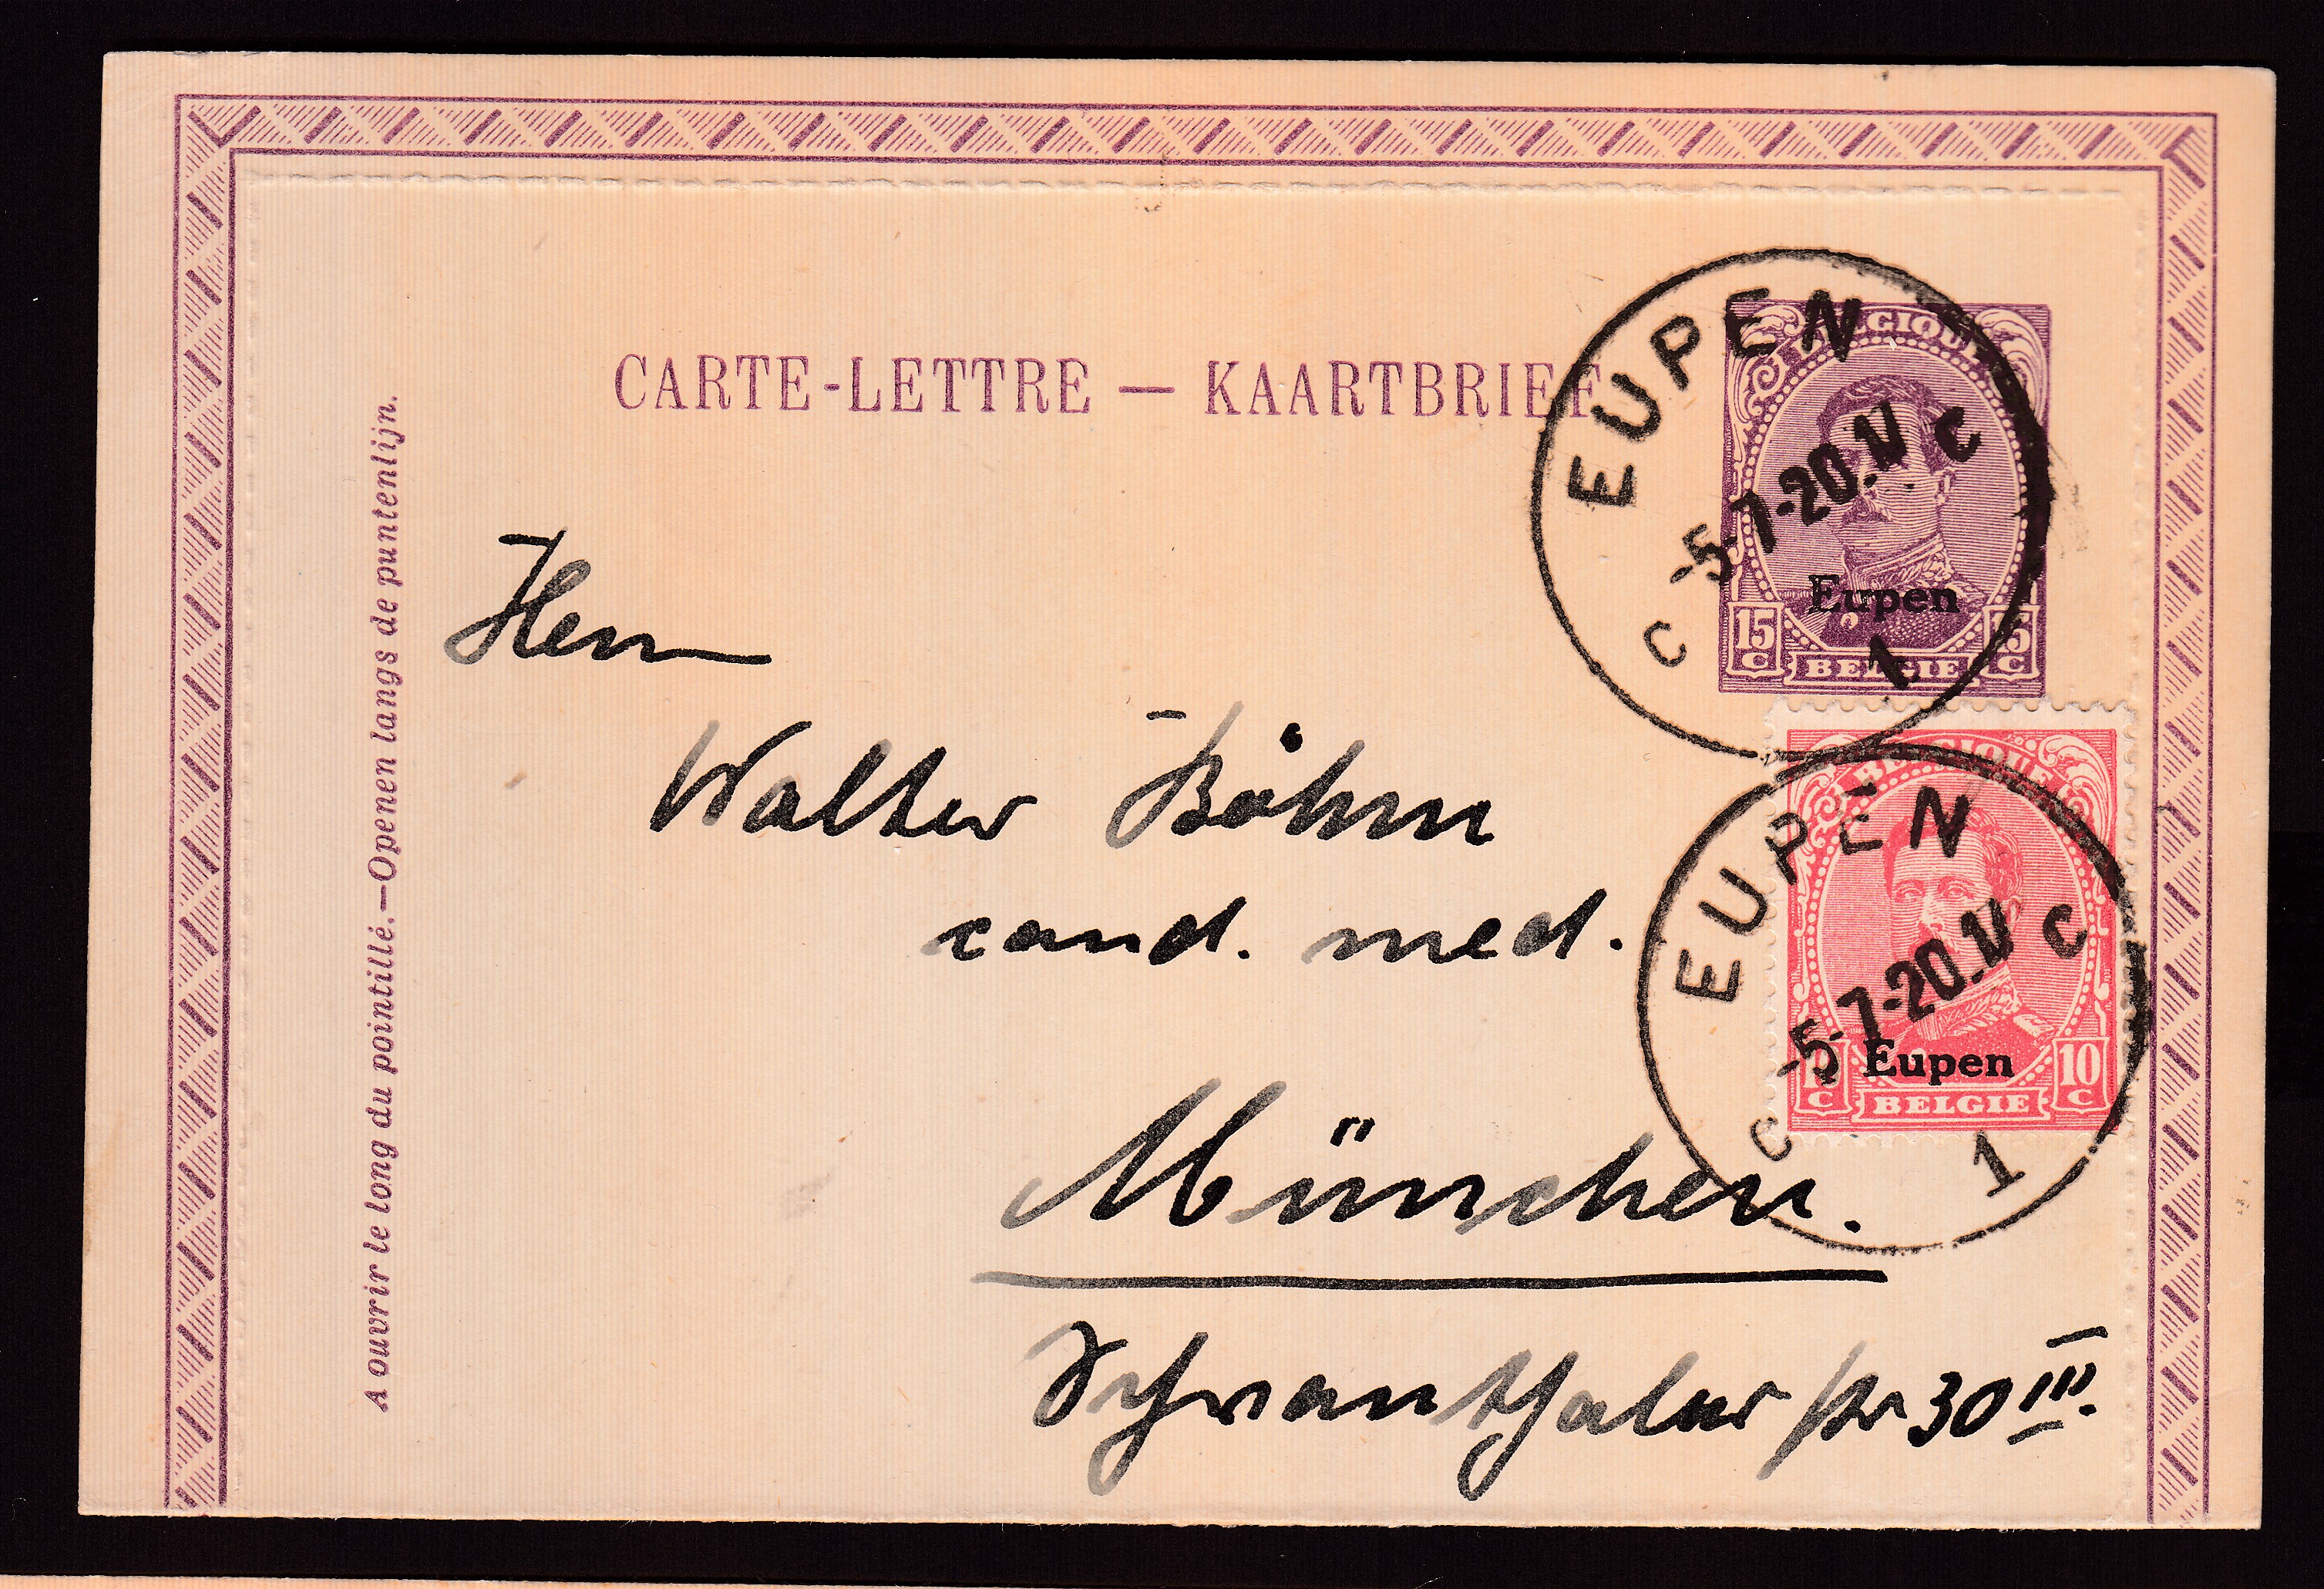 CARTE-LETTRE — KAARTBRIEF
A ouvrir le long du pointillé.—Openen langs de puntenlijn.
BELGIQUE
Eupen
15 C BELGIË 15 C
EUPEN
-5-7-20.
C
C
1
BELGIQUE
Eupen
C BELGIË 10 C
EUPEN
-5-7-20.
C
C
1
Herrn
Walter Böhm
cand. med.
München.
Schwanthalerstr 30 III.